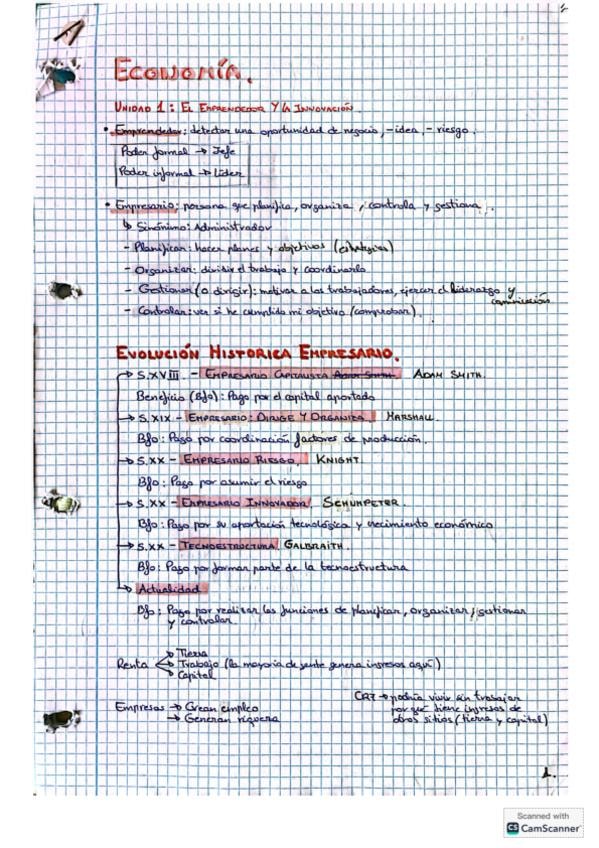 A
Economía.
Unidad 1: El Emprendedor y la Innovación.
• Emprendedor: detectar una oportunidad de negocio, - idea, - riesgo.
Poder formal → Jefe
Poder informal → Líder
• Empresario: persona que planifica, organiza, controla y gestiona.
↳ Sinónimo: Administrador
- Planificar: hacer planes y objetivos (estrategias)
- Organizar: dividir el trabajo y coordinarlo
- Gestionar (o dirigir): motivar a los trabajadores, ejercer el liderazgo y
comunicación
- Controlar: ver si he cumplido mi objetivo (comprobar).
Evolución Historica Empresario.
→ S.XVIII. - Empresario Capitalista Adam Smith. Adam Smith.
Beneficio (Bfo): Pago por el capital aportado
→ S.XIX - Empresario: Dirige y Organiza. Marshall.
Bfo: Pago por coordinación factores de producción.
→ S.XX - Empresario Riesgo. Knight.
Bfo: Pago por asumir el riesgo
→ S.XX - Empresario Innovador. Schumpeter.
Bfo: Pago por su aportación tecnológica y crecimiento económico
→ S.XX - Tecnoestructura. Galbraith.
Bfo: Pago por formar parte de la tecnoestructura
→ Actualidad
Bfo: Pago por realizar las funciones de planificar, organizar, gestionar
y controlar.
→ Tierra
Renta → Trabajo (la mayoria de gente genera ingresos aquí)
→ Capital
CR7 → podría vivir sin trabajar
Empresas → Crean empleo
porqué tiene ingresos de
→ Generan riqueza
otros sitios (tierra y capital)
1.
Scanned with
CS CamScanner